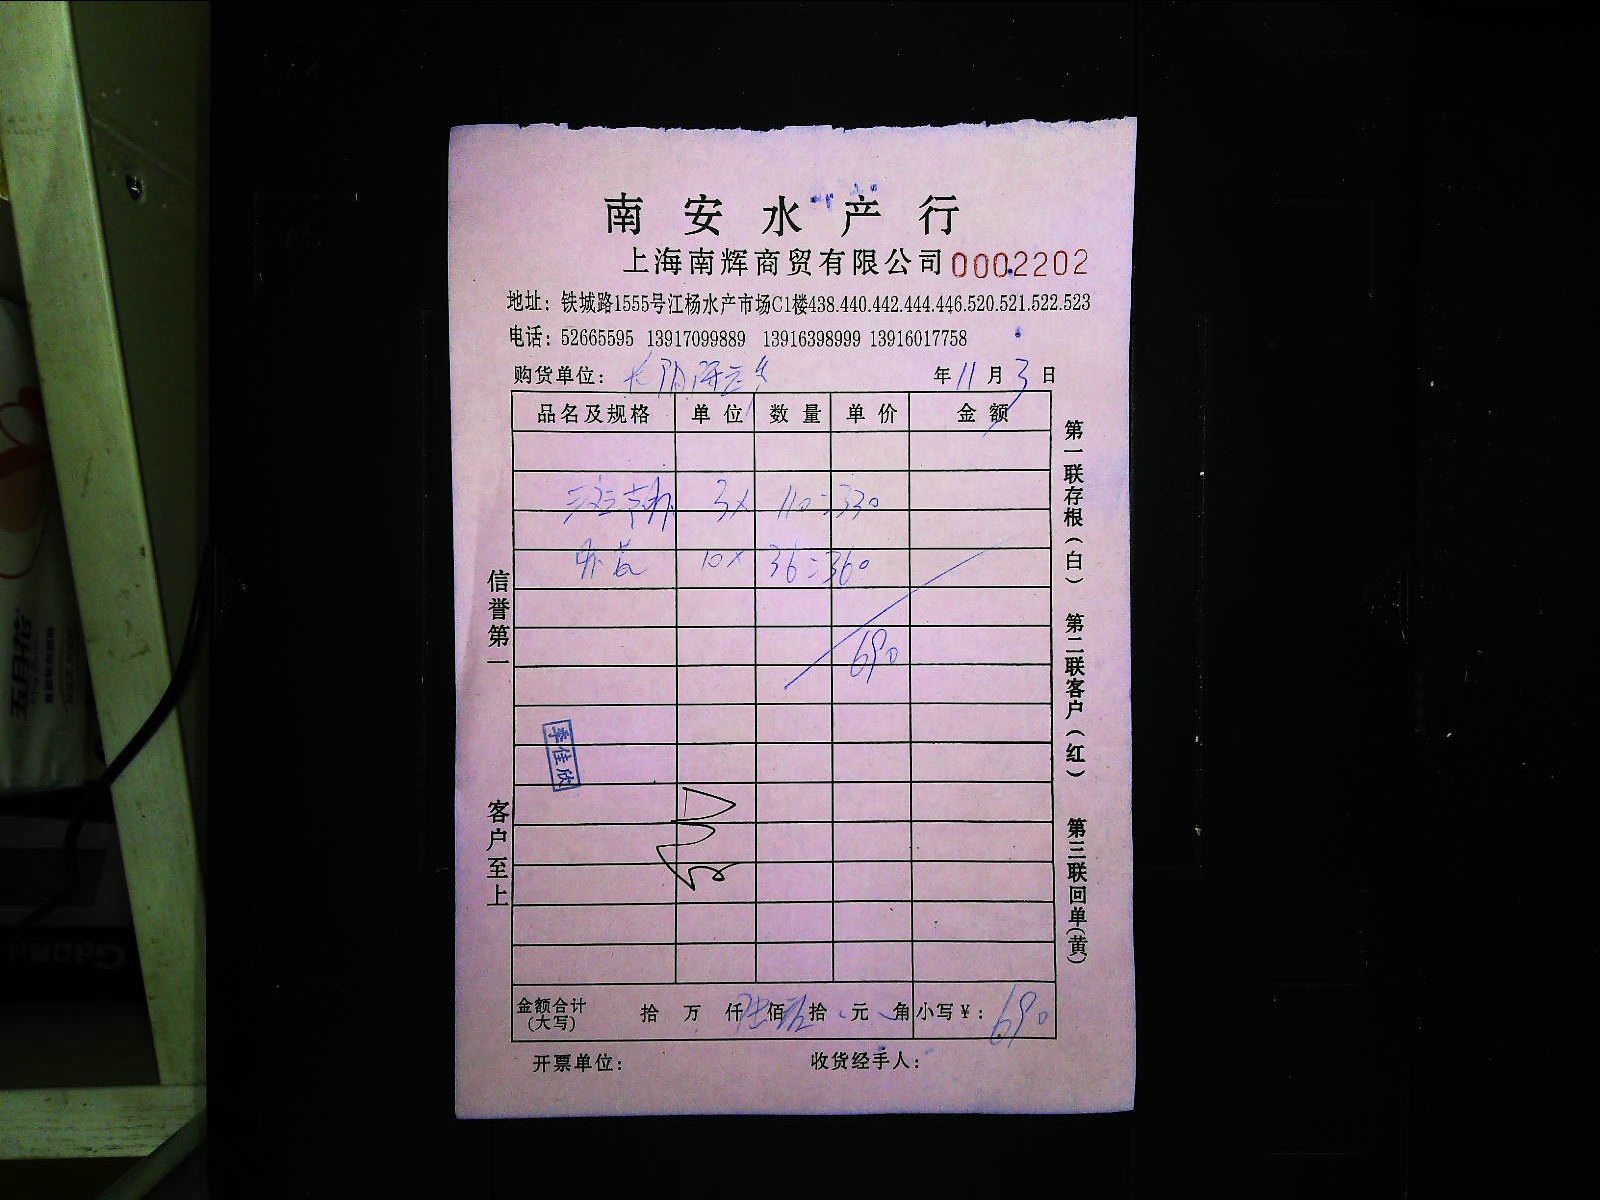 南安水产行
上海南辉商贸有限公司 0002202
地址：铁城路1555号江杨水产市场C1楼438.440.442.444.446.520.521.522.523
电话：52665595 13917099889 13916398999 13916017758
购货单位： 年 11 月 3 日
品名及规格 单位 数量 单价 金额
3× 110=330
10× 36=360
690
季佳欣
金额合计(大写) 拾 万 仟 陆 佰 玖 拾 元 角 小写¥： 690
开票单位： 收货经手人：
信誉第一
客户至上
第一联存根(白)
第二联客户(红)
第三联回单(黄)
五月花